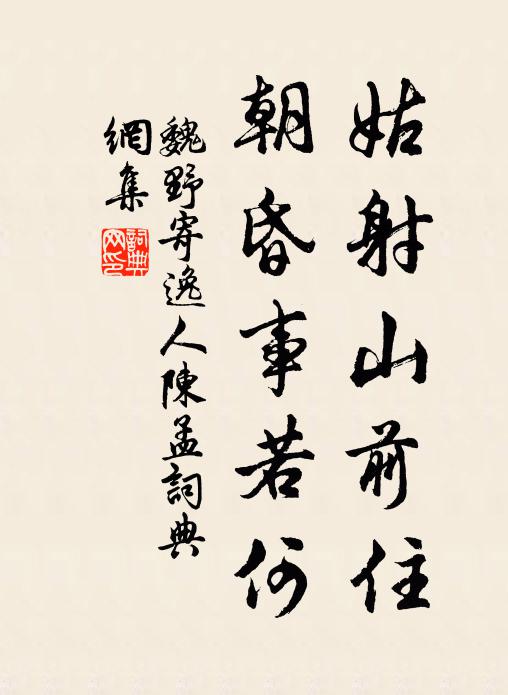 姑射山前住
朝昏事若何
魏野寄逸人陳孟詞典
網集
詞典網印